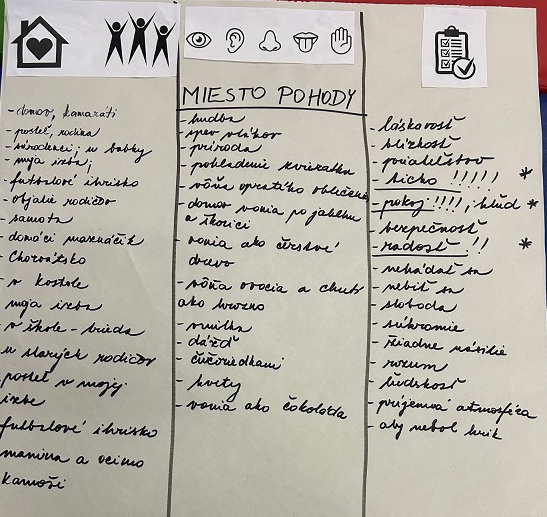 MIESTO POHODY
- domov, kamaráti
- posteľ, rodina
- súrodenci; u babky
- moja izba;
- futbalové ihrisko
- objatie rodičov
- samota
- domáci maznáčik
- Chorvátsko
- v kostole
moja izba
- v škole - trieda
u starých rodičov
- posteľ v mojej
izbe
futbalové ihrisko
mamina a ocino
kamoši
- hudba
- spev vtákov
- príroda
- pohladenie zvieratka
- vôňa opratého oblečenia
- domov vonia po jablku
a škorici
- vonia ako čerstvé
drevo
- vôňa ovocia a chuť
ako hrozno
- vanilka
- dážď
- čučoriedkami
- kvety
- vonia ako čokoláda
- láskavosť
- blízkosť
- priateľstvo
- ticho !!!!! *
- pokoj !!!!, kľud *
- bezpečnosť
- radosť !! *
- nehádať sa
- nebiť sa
- sloboda
- súkromie
- žiadne násilie
- rozum
- ľudskosť
- príjemná atmosféra
- aby nebol krik